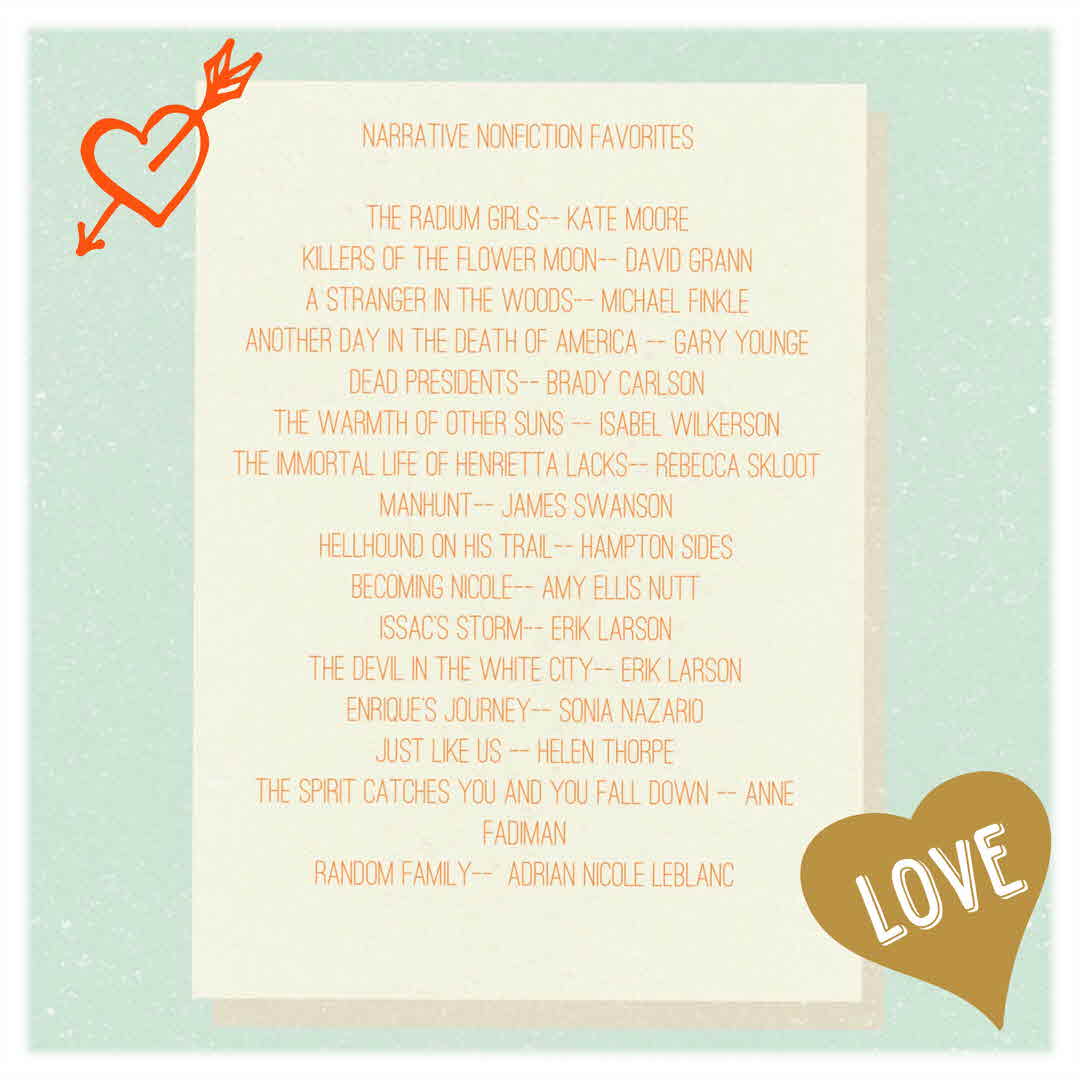 NARRATIVE NONFICTION FAVORITES
THE RADIUM GIRLS-- KATE MOORE
KILLERS OF THE FLOWER MOON-- DAVID GRANN
A STRANGER IN THE WOODS-- MICHAEL FINKLE
ANOTHER DAY IN THE DEATH OF AMERICA -- GARY YOUNGE
DEAD PRESIDENTS-- BRADY CARLSON
THE WARMTH OF OTHER SUNS -- ISABEL WILKERSON
THE IMMORTAL LIFE OF HENRIETTA LACKS-- REBECCA SKLOOT
MANHUNT-- JAMES SWANSON
HELLHOUND ON HIS TRAIL-- HAMPTON SIDES
BECOMING NICOLE-- AMY ELLIS NUTT
ISSAC'S STORM-- ERIK LARSON
THE DEVIL IN THE WHITE CITY-- ERIK LARSON
ENRIQUE'S JOURNEY-- SONIA NAZARIO
JUST LIKE US -- HELEN THORPE
THE SPIRIT CATCHES YOU AND YOU FALL DOWN -- ANNE
FADIMAN
RANDOM FAMILY-- ADRIAN NICOLE LEBLANC
LOVE